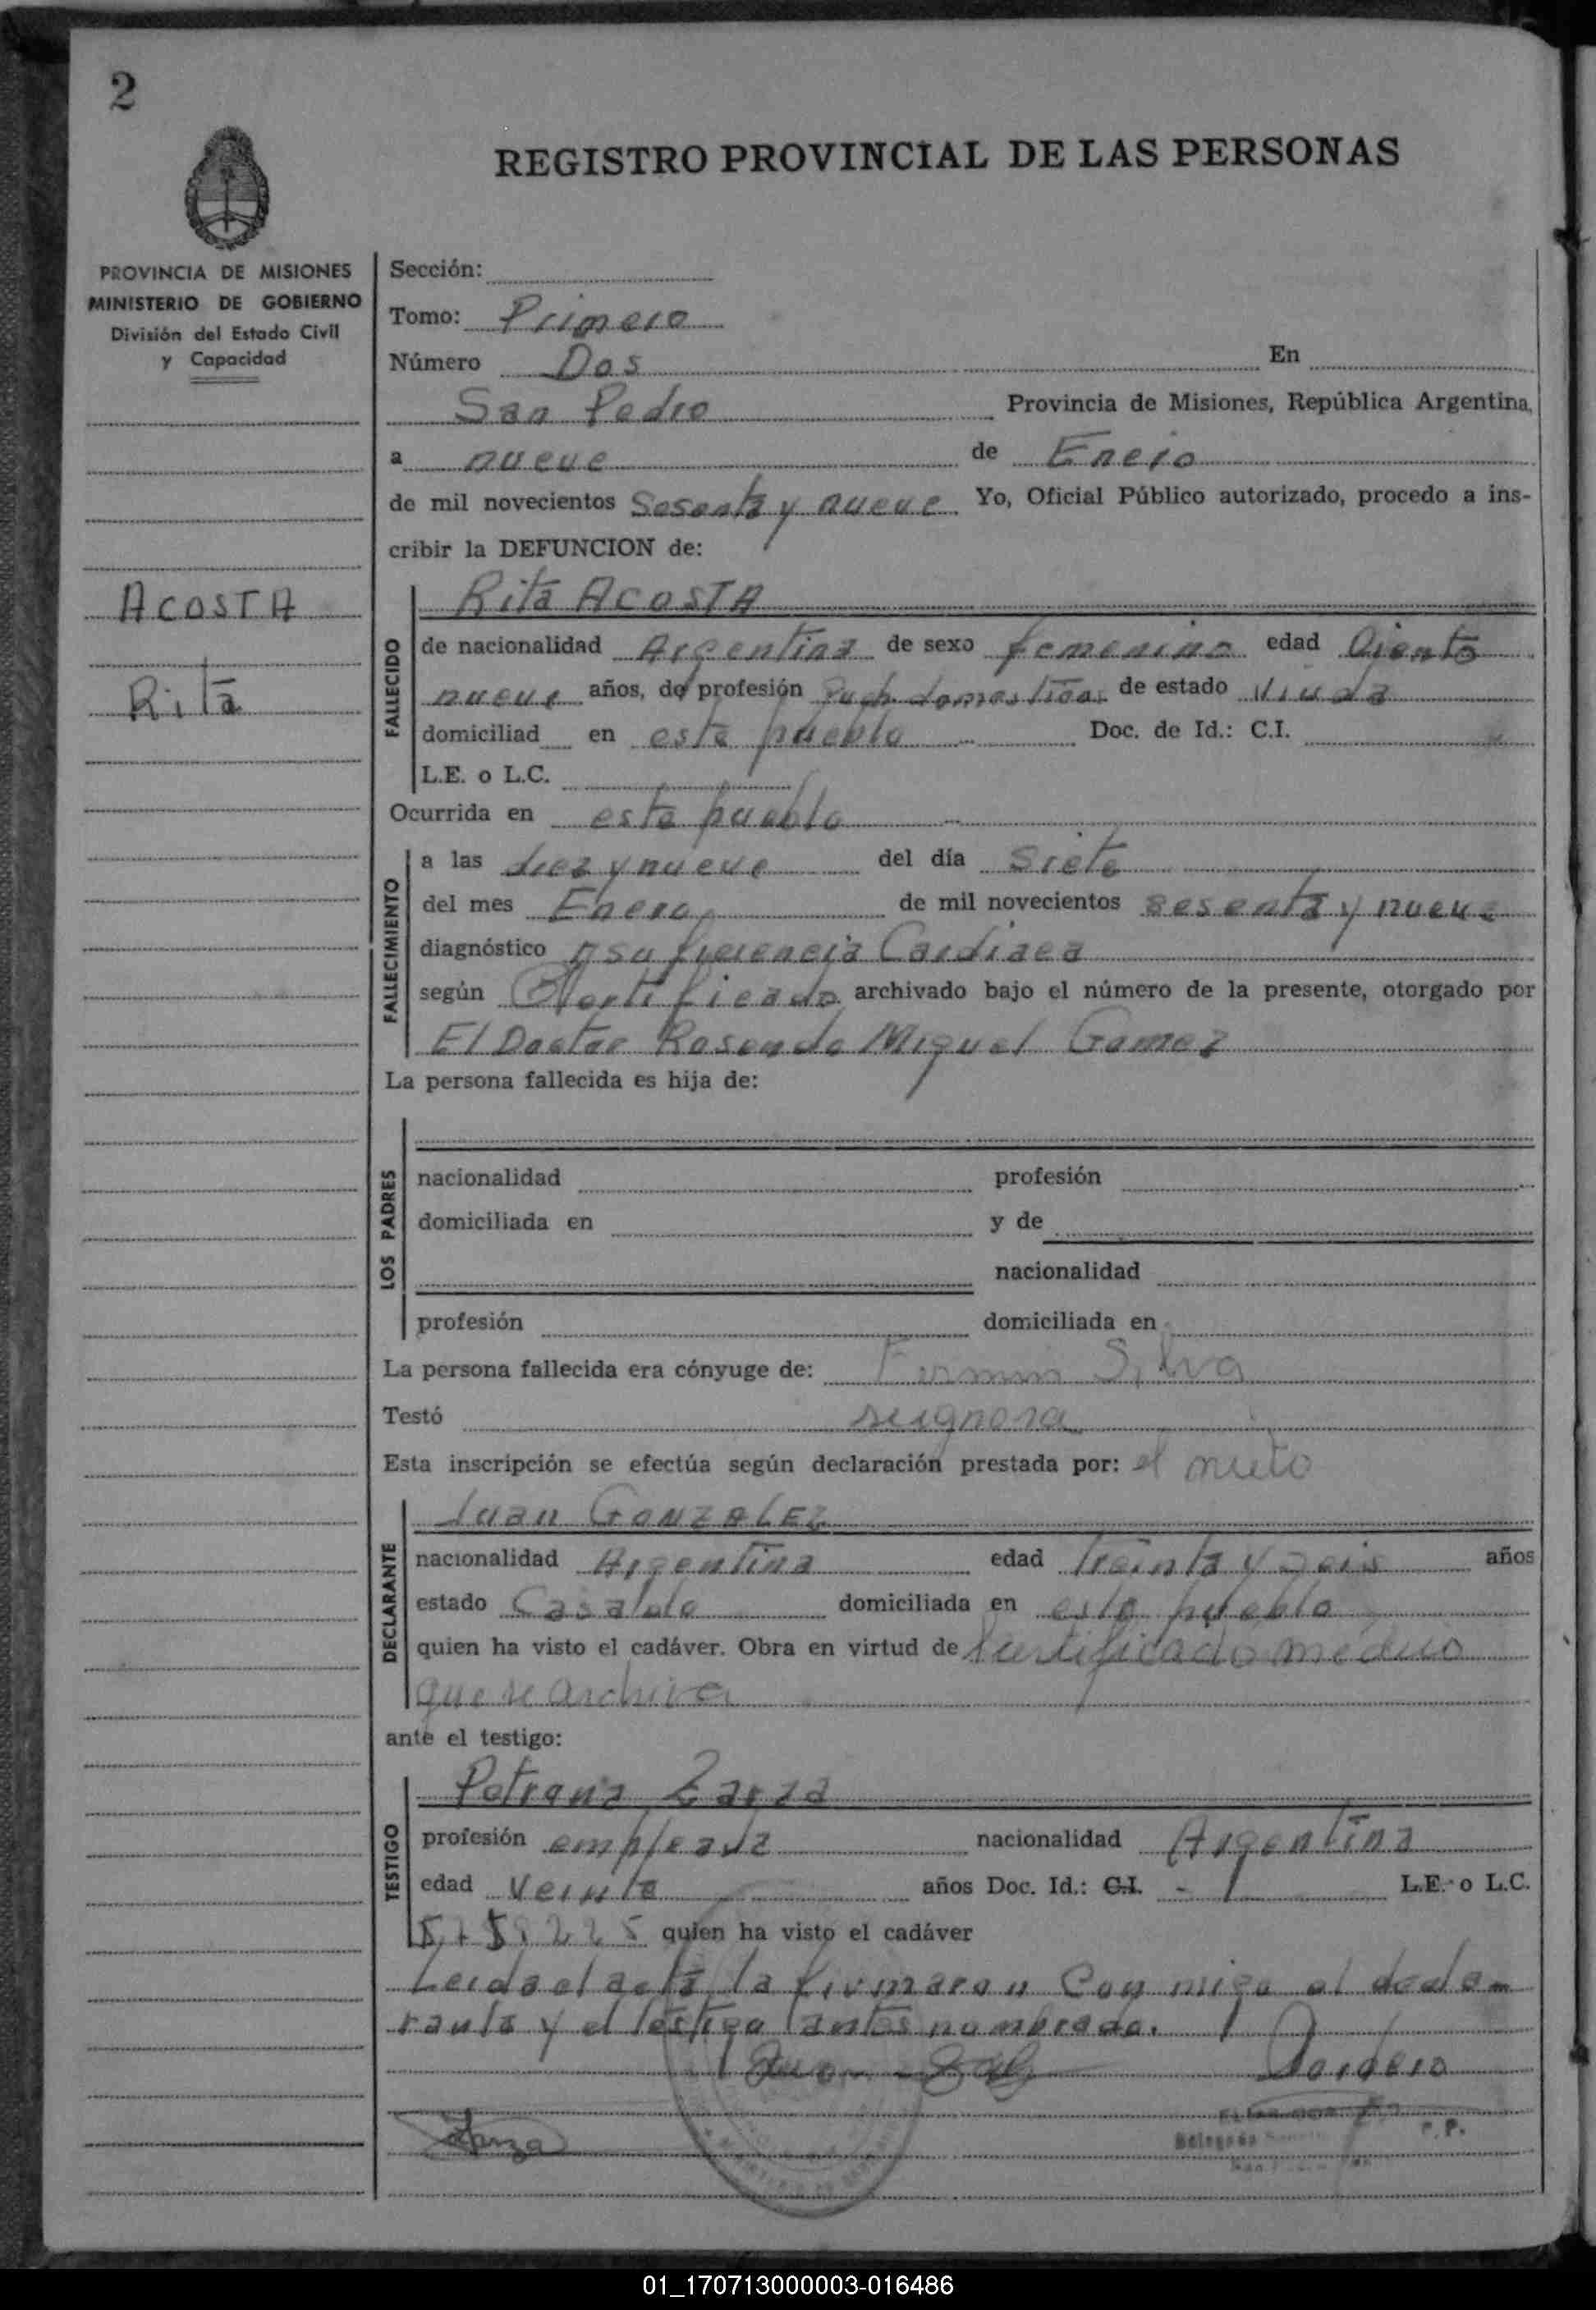 2
REGISTRO PROVINCIAL DE LAS PERSONAS
PROVINCIA DE MISIONES
MINISTERIO DE GOBIERNO
División del Estado Civil
y Capacidad
ACOSTA
Rita
Sección:
Tomo: Primero
Número Dos En
San Pedro Provincia de Misiones, República Argentina,
a nueve de Enero
de mil novecientos Sesenta y nueve Yo, Oficial Público autorizado, procedo a ins-
cribir la DEFUNCION de:
FALLECIDO
Rita ACOSTA
de nacionalidad Argentina de sexo femenino edad Ciento
nueve años, de profesión domesticos de estado Viuda
domiciliad en este pueblo Doc. de Id.: C.I.
L.E. o L.C.
Ocurrida en este pueblo
FALLECIMIENTO
a las diez y nueve del día Siete
del mes Enero de mil novecientos sesenta y nueve
diagnóstico Cardiaca
según archivado bajo el número de la presente, otorgado por
El Doctor Rosendo Miguel Gomez
La persona fallecida es hija de:
LOS PADRES
nacionalidad profesión
domiciliada en y de
nacionalidad
profesión domiciliada en
La persona fallecida era cónyuge de: Fermin Silva
Testó se ignora
Esta inscripción se efectúa según declaración prestada por: el nieto
DECLARANTE
Juan GONZALEZ
nacionalidad Argentina edad treinta y seis años
estado Casado domiciliada en este pueblo
quien ha visto el cadáver. Obra en virtud de certificado médico
que se archiva
ante el testigo:
TESTIGO
Petrona Zarza
profesión empleada nacionalidad Argentina
edad Veinte años Doc. Id.: C.I. - L.E. o L.C.
quien ha visto el cadáver
Leida el acta la firmaron Con migo el decla-
rante y el testigo antes nombrado.
Zarza
P.P.
01_170713000003-016486